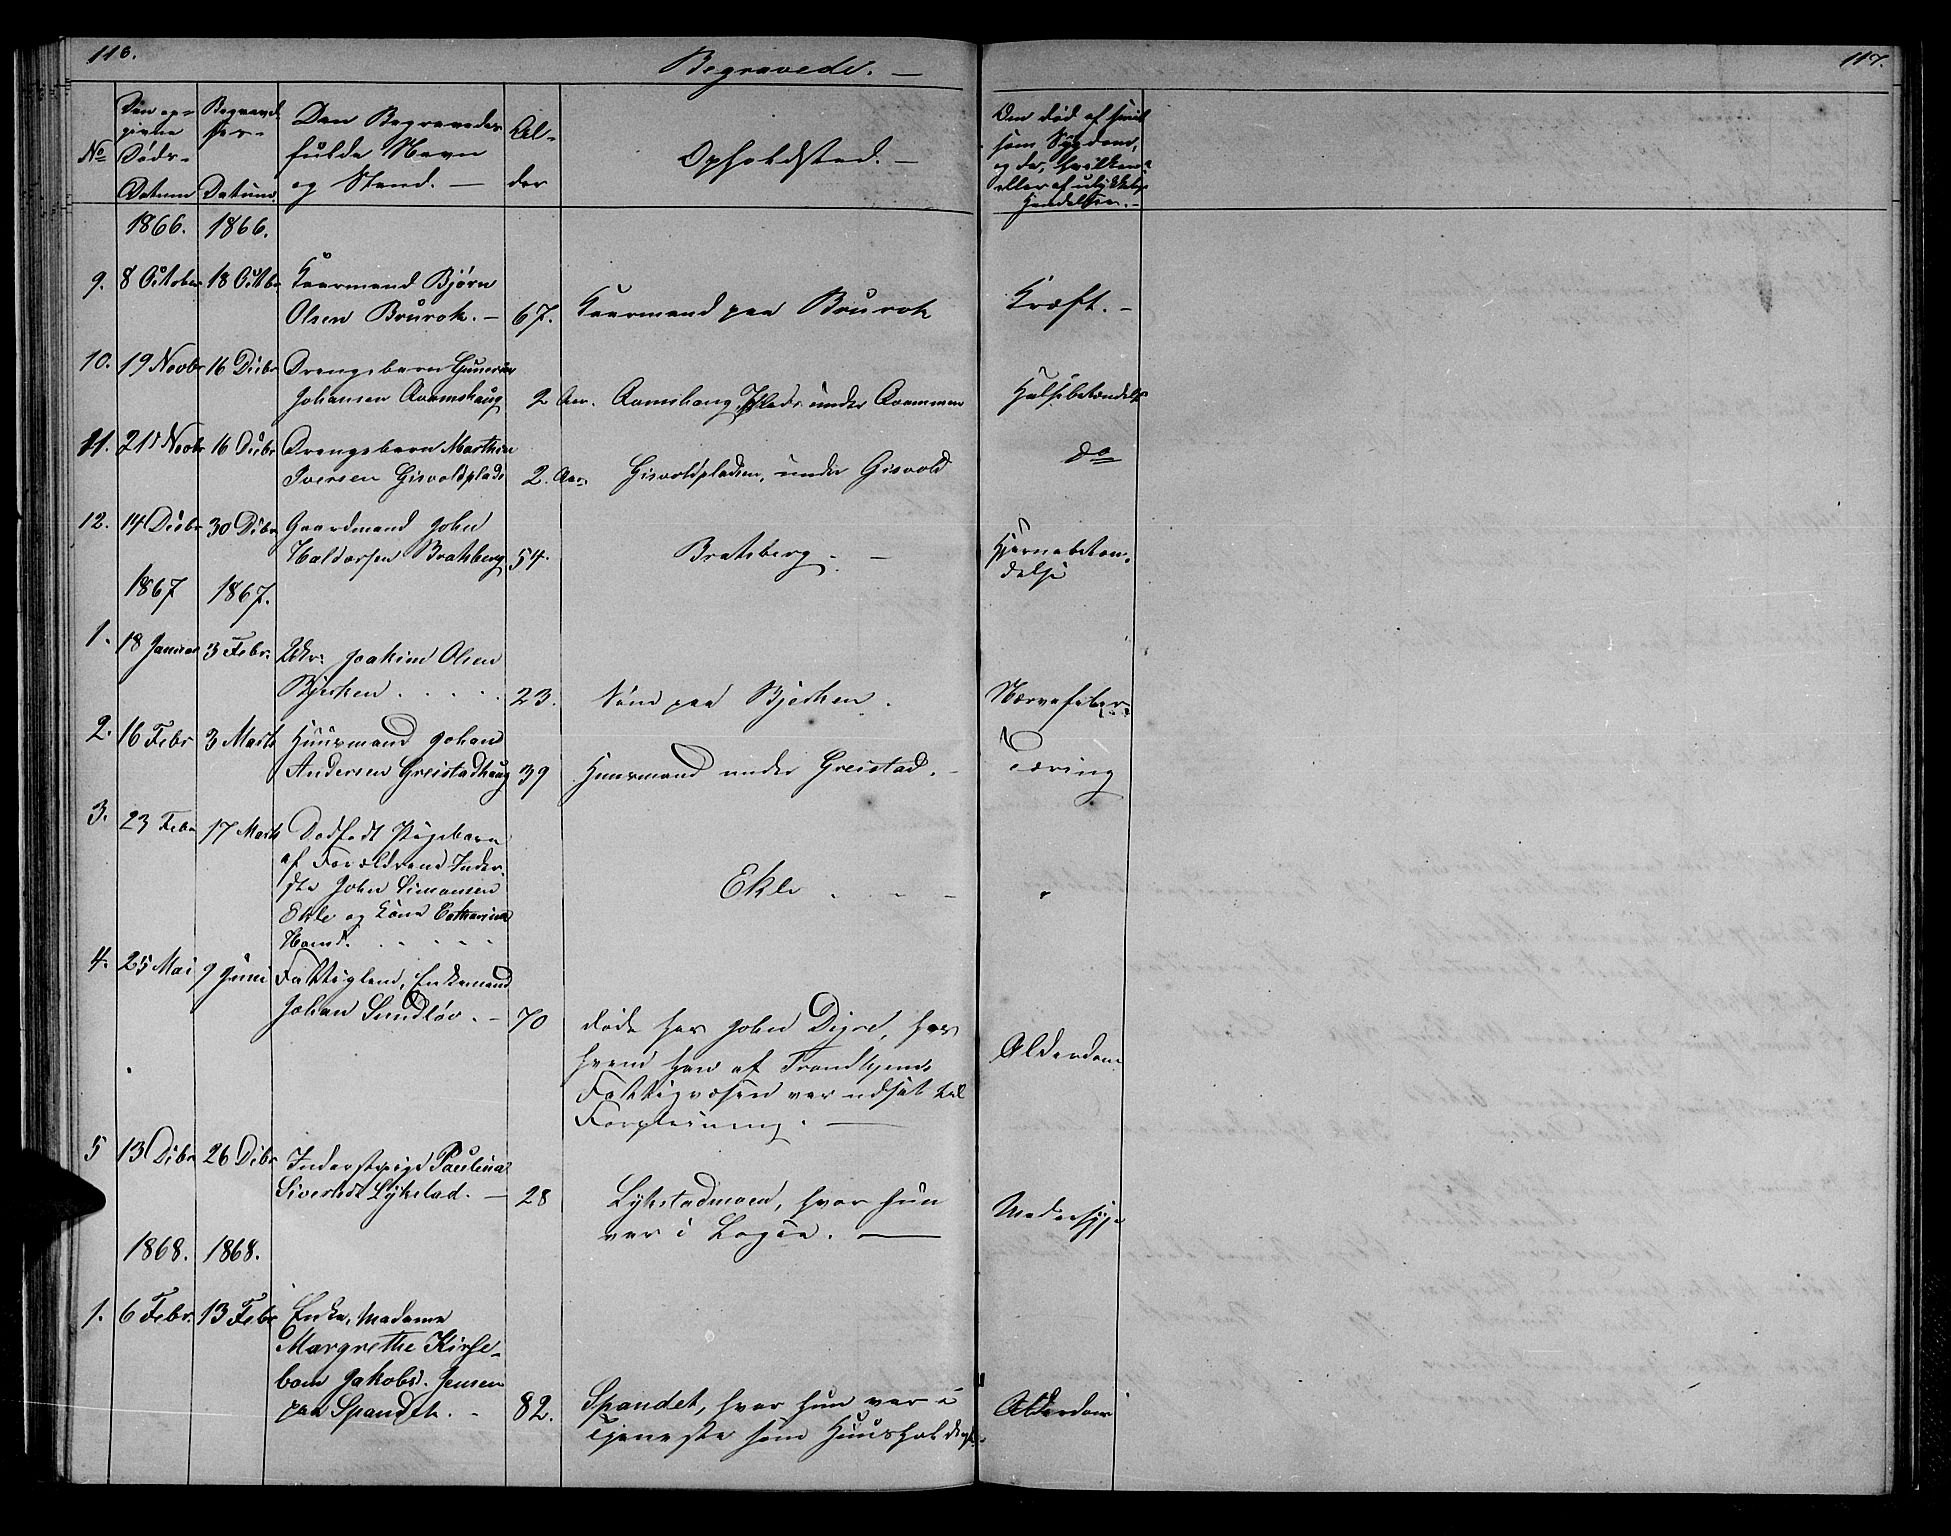 116.
Begravede. —
117.
No
Den op-
givne
Døds-
Datum
Begravel
ses-
Datum.
Den Begravedes
fulde Navn
og Stand. —
Al-
der
Opholdsted. —
Om død af
som Sygdom,
og da, hvilken?
eller af ulykkelig
Hændelse. -
1866. 1866.
9. 8 October 18 Octbr Kaarmand Bjørn
Olsen Brurok. — 67. Kaarmand paa Brurok Kræft. -
10. 19 Novbr 16 Decbr Drengebarn Gunerius
Johansen Avamshaug 2 Aar. Aamshaug Plads under Avammen Halsbetændelse
11. 21 Novbr 16 Decbr Drengebarn Marthin
Iversen Gisvoldplads 2. Aar. Gisvoldpladsen, under Gisvold do
12. 14 Decbr 30 Dcbr Gaardmand John
Haldorsen Bratsberg 54. Bratsberg. — Hjernebetæn-
delse
1867 1867.
1. 18 Januar 3 Febr. Ukr. Joakim Olsen
Bjerken . . . . 23. Søn paa Bjerken. Nervefeber
2. 16 Febr 3 Marts Huusmand Johan
Andersen Greistadhaug 39 Huusmand under Greistad. - Tæring
3. 23 Febr 17 Marts Dødfødt Pigebarn
af Forældrene Inder-
ste John Simonsen
Ekle og Kone Catharina
Hansd. . . . . Ekle . - - "
4. 25 Mai 9 Juni Fattiglem, Enkemand
Johan Sundlöv. — 70 døde hos John Digre, hos
hvem han af Trondhjems
Fattigvæsen var udsat til
Forpleining. — Alderdom
5 13 Dcbr 26 Dcbr Inderstpige Paulina
Sivertsdt Lykstad. — 28 Lykstadmoen, hvor hun
var i Logie. — Modersyge
1868. 1868.
1. 6 Febr. 13 Febr Enke, Madame
Margrethe Kirse-
bom Jakobsd. Jensen
paa Spandet. - 82. Spandet, hvor hun var i
Tjeneste som Huusholderske. Alderdom